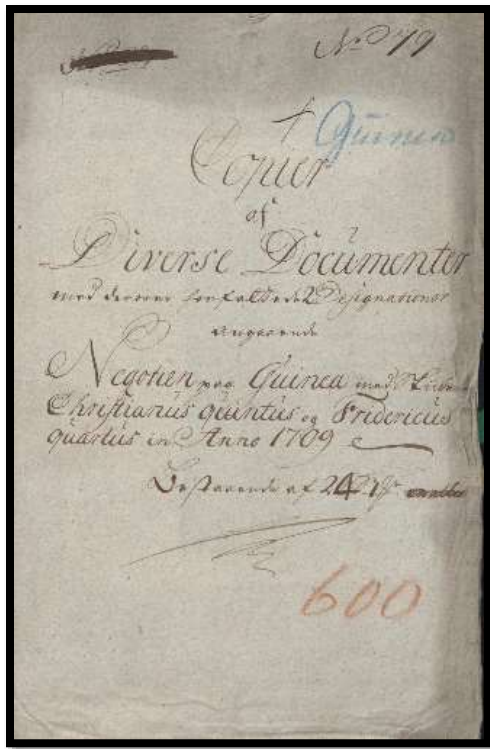 No 79
Guinea
Copier
af
Diverse Documenter
med derover forfattede 2 Designationer
angaaende
Negotien paa Guinea med Skibene
Christianus quintus og Fridericus
quartus in Anno 1709
Bestaaende af 24
600